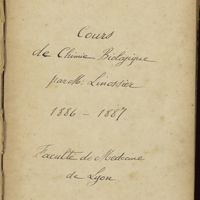 Cours
de Chimie Biologique
par M. Linossier
1886 - 1887
Faculté de Medecine
de Lyon.